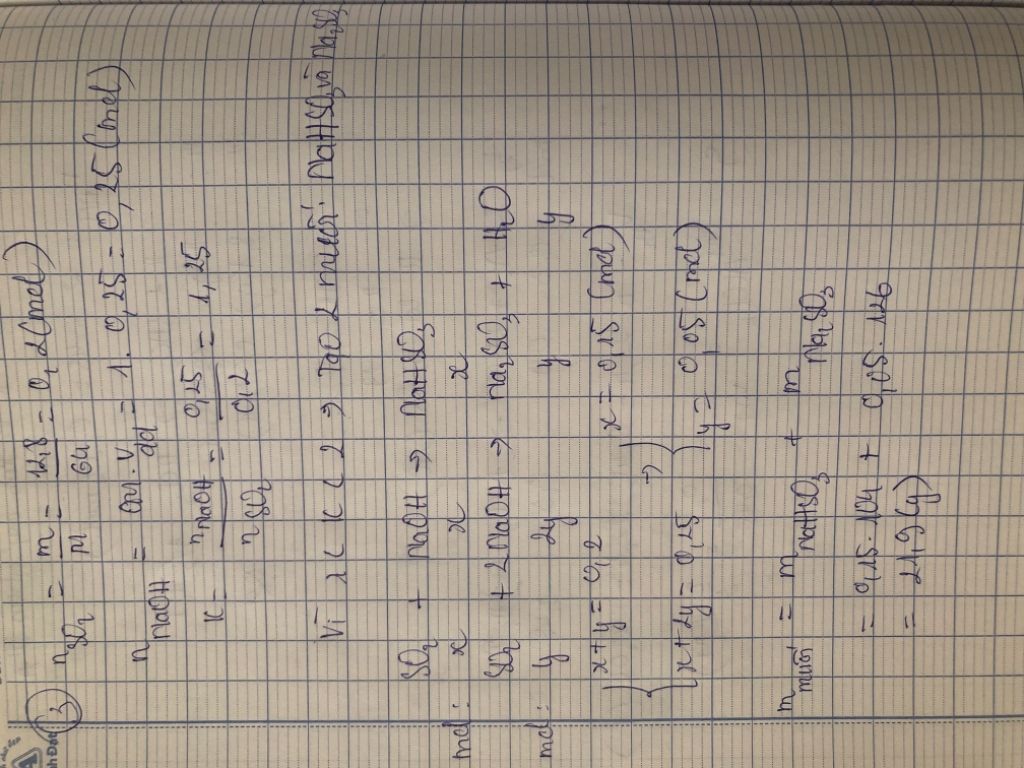 3
n SO₂ = m/M = 12,8/64 = 0,2 (mol)
n NaOH = CM . V dd = 1 . 0,25 = 0,25 (mol)
K = n NaOH / n SO₂ = 0,25/0,2 = 1,25
Vì 1 < K < 2 => Tạo 2 muối: NaHSO₃ và Na₂SO₃
SO₂ + NaOH → NaHSO₃
mol: x x x
SO₂ + 2NaOH → Na₂SO₃ + H₂O
mol: y 2y y y
{ x + y = 0,2 → } x = 0,15 (mol)
{ x + 2y = 0,25 } y = 0,05 (mol)
m muối = m NaHSO₃ + m Na₂SO₃
= 0,15 . 104 + 0,05 . 126
= 21,9 (g)